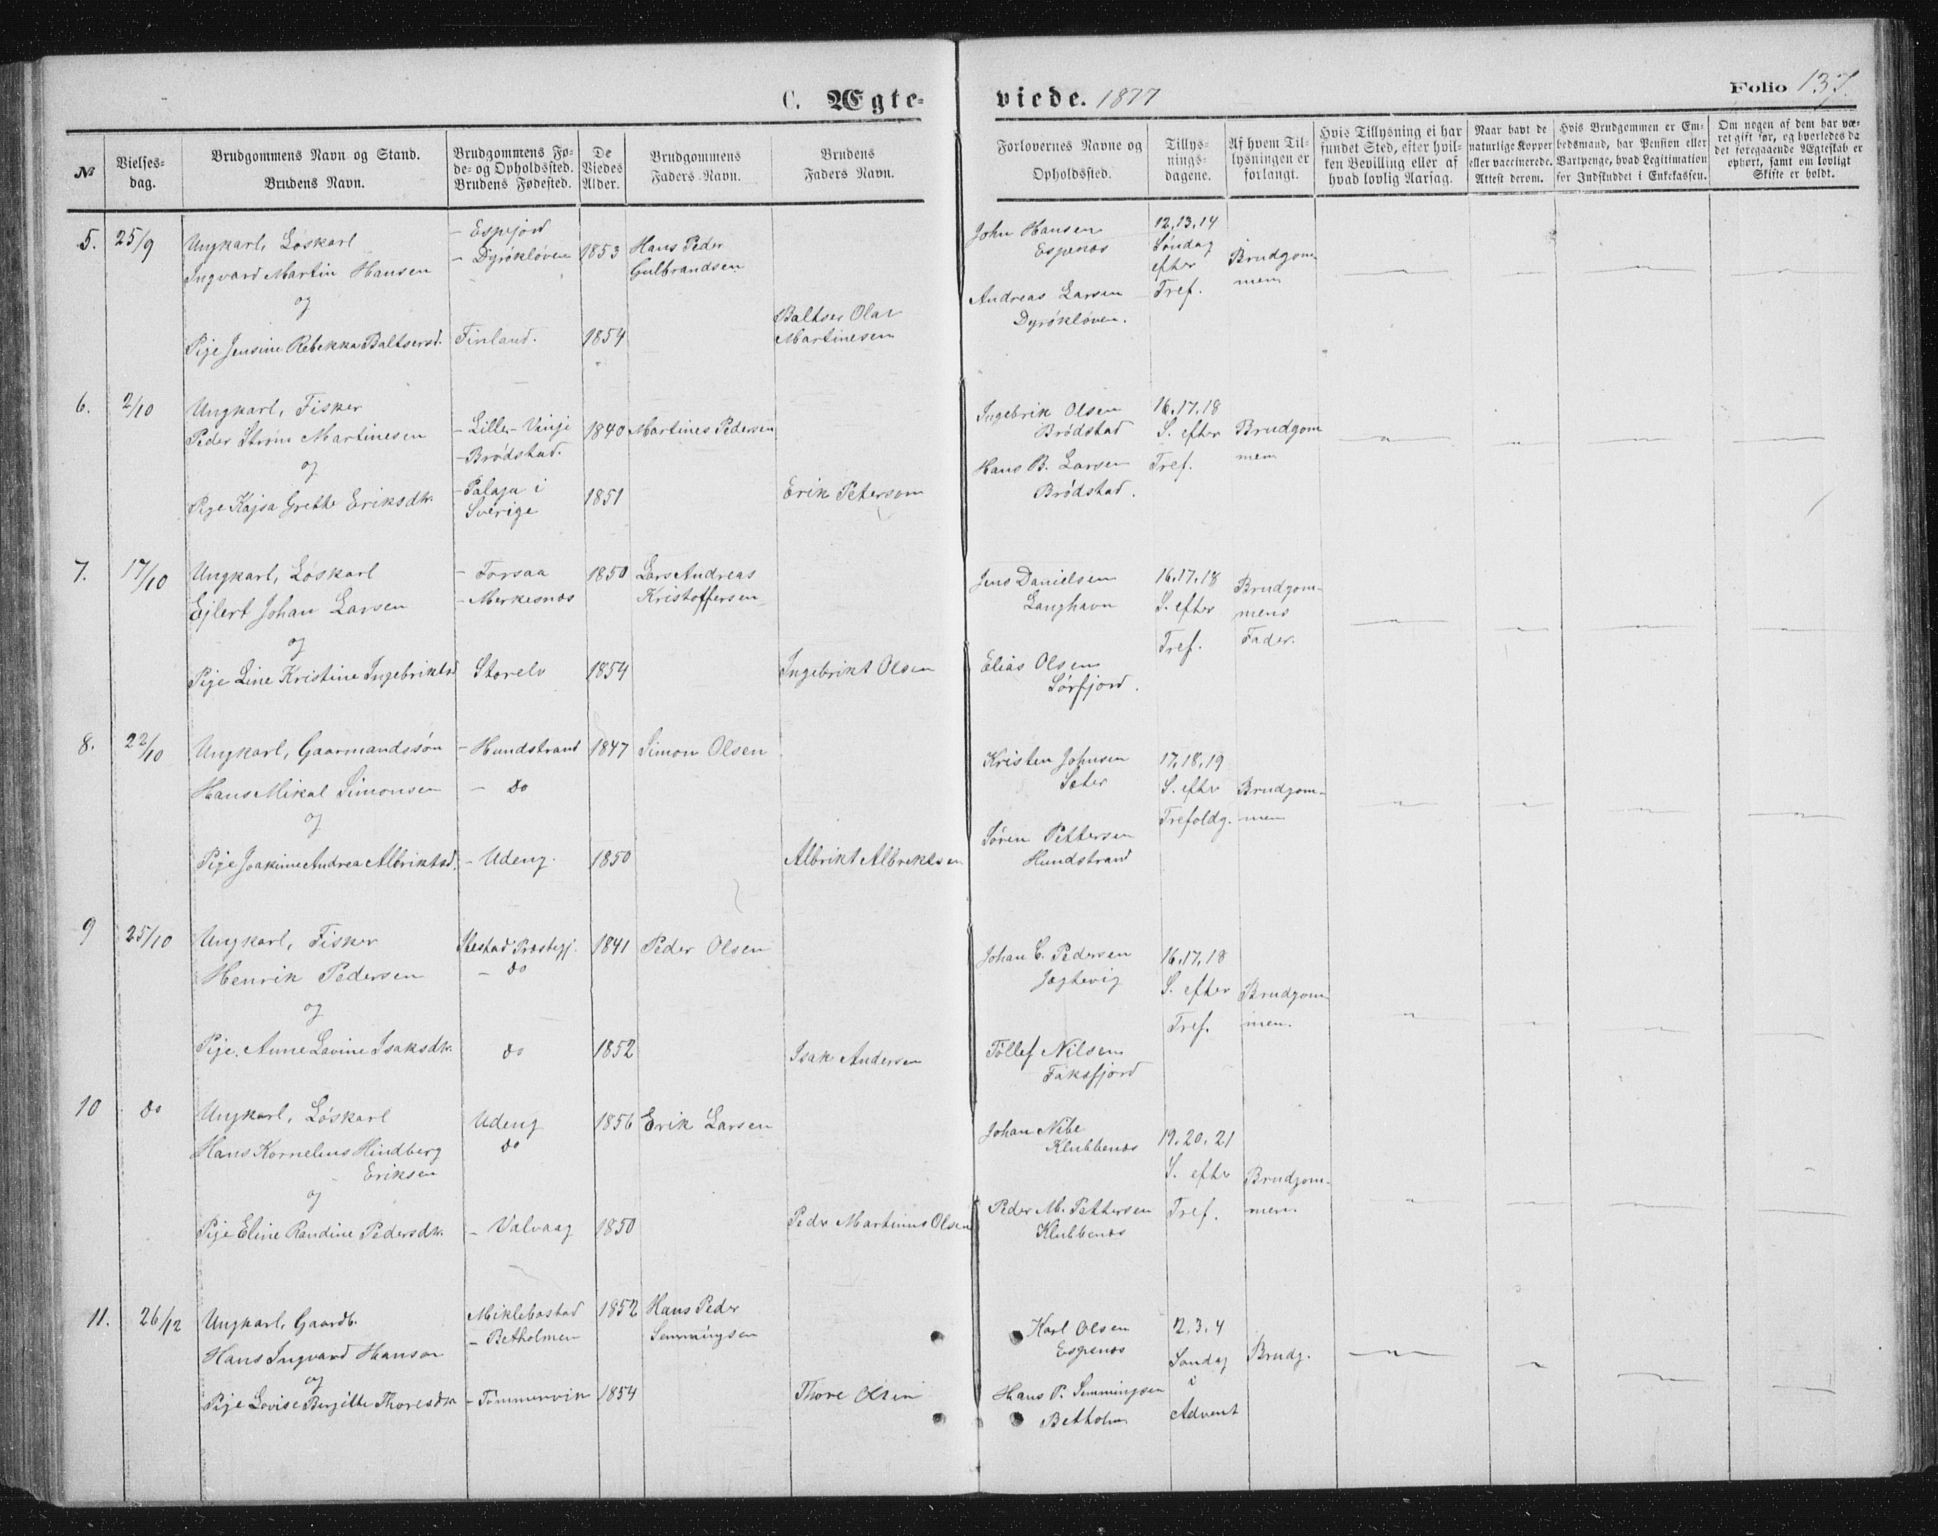 C. Ægte-
viede. 1877
Folio 137.
№
Vielses-
dag.
Brudgommens Navn og Stand.
Brudens Navn.
Brudgommens Fø-
de- og Opholdssted.
Brudens Fødested.
De
Viedes
Alder.
Brudgommens
Faders Navn.
Brudens
Faders Navn.
Forlovernes Navne og
Opholdssted.
Tillys-
nings-
dagene.
Af hvem Til-
lysningen er
forlangt.
Hvis Tillysning ei har
fundet Sted, efter hvil-
ken Bevilling eller af
hvad lovlig Aarsag.
Naar havt de
naturlige Kopper
eller vaccinerede.
Attest derom.
Hvis Brudgommen er Em-
bedsmand, har Pension eller
Vartpenge, hvad Legitimation
for Indskuddet i Enkekassen.
Om nogen af dem har væ-
ret gift før, og hvorledes da
det foregaaende Ægteskab er
ophørt, samt om lovligt
Skifte er holdt.
5. 25/9
Ungkarl, Løskarl
Ingvard Martin Hansen
og
Pige Jensine Rebekka Baltsersd.
- Espejord
- Dyrøkløven
Finland.
1853
1854
Hans Peder
Gulbrandsen
Baltser Olai
Martinesen
John Hansen
Espenæs
Andreas Larsen
Dyrøkløven.
12, 13, 14
Søndag
efter
Tref.
Brudgom-
men
6. 2/10
Ungkarl, Fisker
Peder Strøm Martinesen
og
Pige Kajsa Grethe Eriksdtr.
- Lille-Vinje
- Brødstad.
- Palaja i
Sverige
1840
1851
Martines Pedersen
Erik Peterson
Ingebrik Olsen
Brødstad
Hans B. Larsen
Brødstad.
16, 17, 18
S. efter
Tref.
Brudgom
men
7. 17/10
Ungkarl, Løskarl
Ejlert Johan Larsen
og
Pige Line Kristine Ingebriktsd
- Forsaa
- Merkesnæs
Storelv
1850
1854
Lars Andreas
Kristoffersen
Ingebrikt Olsen
Jens Danielsen
Langhavn
Elias Olsen
Sørfjord.
16, 17, 18
S. efter
Tref.
Brudgom-
mens
Fader.
8. 22/10
Ungkarl, Gaarmandssøn
Hans Mikal Simonsen
og
Pige Joakime Andrea Albriktsd.
- Hundstrand
- do
- Udeng.
1847
1850
Simon Olsen
Albrikt Albriktsen
Kristen Johnsen
Seter
Søren Pettersen
Hundstrand
17, 18, 19
S. efter
Trefoldg.
Brudgom-
men
9 25/10
Ungkarl, Fisker
Henrik Pedersen
og
Pige. Anne Lavine Isaksdtr.
Ibestad Præstegj.
- do
do
1841
1852
Peder Olsen
Isak Andersen
Johan C. Pedersen
Jægtevig
Tollef Nilsen
Faksfjord
16, 17, 18
S. efter
Tref.
Brudgom-
men.
10 do
Ungkarl, Løskarl
Hans Kornelius Hindberg
Eriksen
og
Pige Eline Randine Pedersdtr.
Udeng
do
- Valvaag
1856
1850
Erik Larsen
Peder Martinus Olsen
Johan Nibe
Klubbenæs
Peder M. Pettersen
Klubbenæs
19. 20. 21
S. efter
Tref.
Brudgom-
men.
11. 26/12
Ungkarl, Gaardb.
Hans Ingvard Hanson
og
Pige Lovise Birgitte Thoresdtr.
Miklebostad
- Betholmen
- Tømmervik
1852
1854
Hans Peder
Semmingsen
Thore Olsen
Karl Olsen
Espenæs
Hans P. Semmingsen
Betholm
2. 3. 4
Søndag
i
Advent
Brudg.